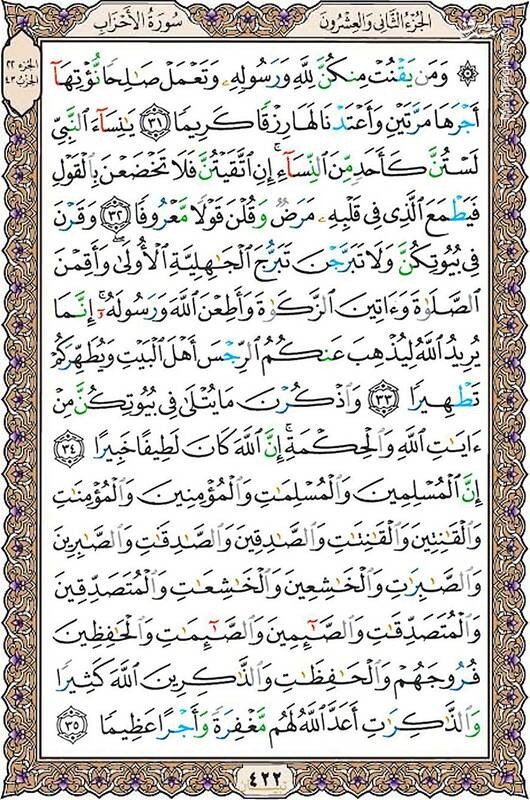 الجُزءُ الثَّانِی وَالعِشرُونَ
سُورَةُ الأَحۡزَابِ
الجزء ۲۲
الحزب ٤٣
۞ وَمَن يَقۡنُتۡ مِنكُنَّ لِلَّهِ وَرَسُولِهِۦ وَتَعۡمَلۡ صَٰلِحٗا نُّؤۡتِهَآ
أَجۡرَهَا مَرَّتَيۡنِ وَأَعۡتَدۡنَا لَهَا رِزۡقٗا كَرِيمٗا ٣١ يَٰنِسَآءَ ٱلنَّبِيِّ
لَسۡتُنَّ كَأَحَدٖ مِّنَ ٱلنِّسَآءِۚ إِنِ ٱتَّقَيۡتُنَّ فَلَا تَخۡضَعۡنَ بِٱلۡقَوۡلِ
فَيَطۡمَعَ ٱلَّذِي فِي قَلۡبِهِۦ مَرَضٞ وَقُلۡنَ قَوۡلٗا مَّعۡرُوفٗا ٣٢ وَقَرۡنَ
فِي بُيُوتِكُنَّ وَلَا تَبَرَّجۡنَ تَبَرُّجَ ٱلۡجَٰهِلِيَّةِ ٱلۡأُولَىٰۖ وَأَقِمۡنَ
ٱلصَّلَوٰةَ وَءَاتِينَ ٱلزَّكَوٰةَ وَأَطِعۡنَ ٱللَّهَ وَرَسُولَهُۥٓۚ إِنَّمَا
يُرِيدُ ٱللَّهُ لِيُذۡهِبَ عَنكُمُ ٱلرِّجۡسَ أَهۡلَ ٱلۡبَيۡتِ وَيُطَهِّرَكُمۡ
تَطۡهِيرٗا ٣٣ وَٱذۡكُرۡنَ مَا يُتۡلَىٰ فِي بُيُوتِكُنَّ مِنۡ
ءَايَٰتِ ٱللَّهِ وَٱلۡحِكۡمَةِۚ إِنَّ ٱللَّهَ كَانَ لَطِيفًا خَبِيرًا ٣٤
إِنَّ ٱلۡمُسۡلِمِينَ وَٱلۡمُسۡلِمَٰتِ وَٱلۡمُؤۡمِنِينَ وَٱلۡمُؤۡمِنَٰتِ
وَٱلۡقَٰنِتِينَ وَٱلۡقَٰنِتَٰتِ وَٱلصَّٰدِقِينَ وَٱلصَّٰدِقَٰتِ وَٱلصَّٰبِرِينَ
وَٱلصَّٰبِرَٰتِ وَٱلۡخَٰشِعِينَ وَٱلۡخَٰشِعَٰتِ وَٱلۡمُتَصَدِّقِينَ
وَٱلۡمُتَصَدِّقَٰتِ وَٱلصَّٰٓئِمِينَ وَٱلصَّٰٓئِمَٰتِ وَٱلۡحَٰفِظِينَ
فُرُوجَهُمۡ وَٱلۡحَٰفِظَٰتِ وَٱلذَّٰكِرِينَ ٱللَّهَ كَثِيرٗا
وَٱلذَّٰكِرَٰتِ أَعَدَّ ٱللَّهُ لَهُم مَّغۡفِرَةٗ وَأَجۡرًا عَظِيمٗا ٣٥
٤٢٢